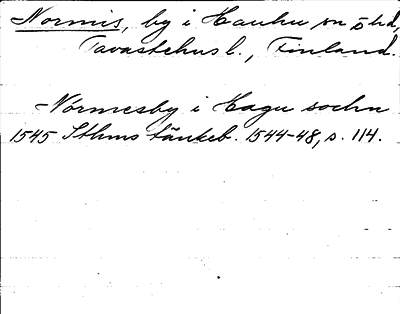 Normis, by i Hauhu sn ö hd,
Tavastehus l., Finland.
Normesby i Hagu sochn
1545 Sthms tänkeb. 1544-48, s. 114.